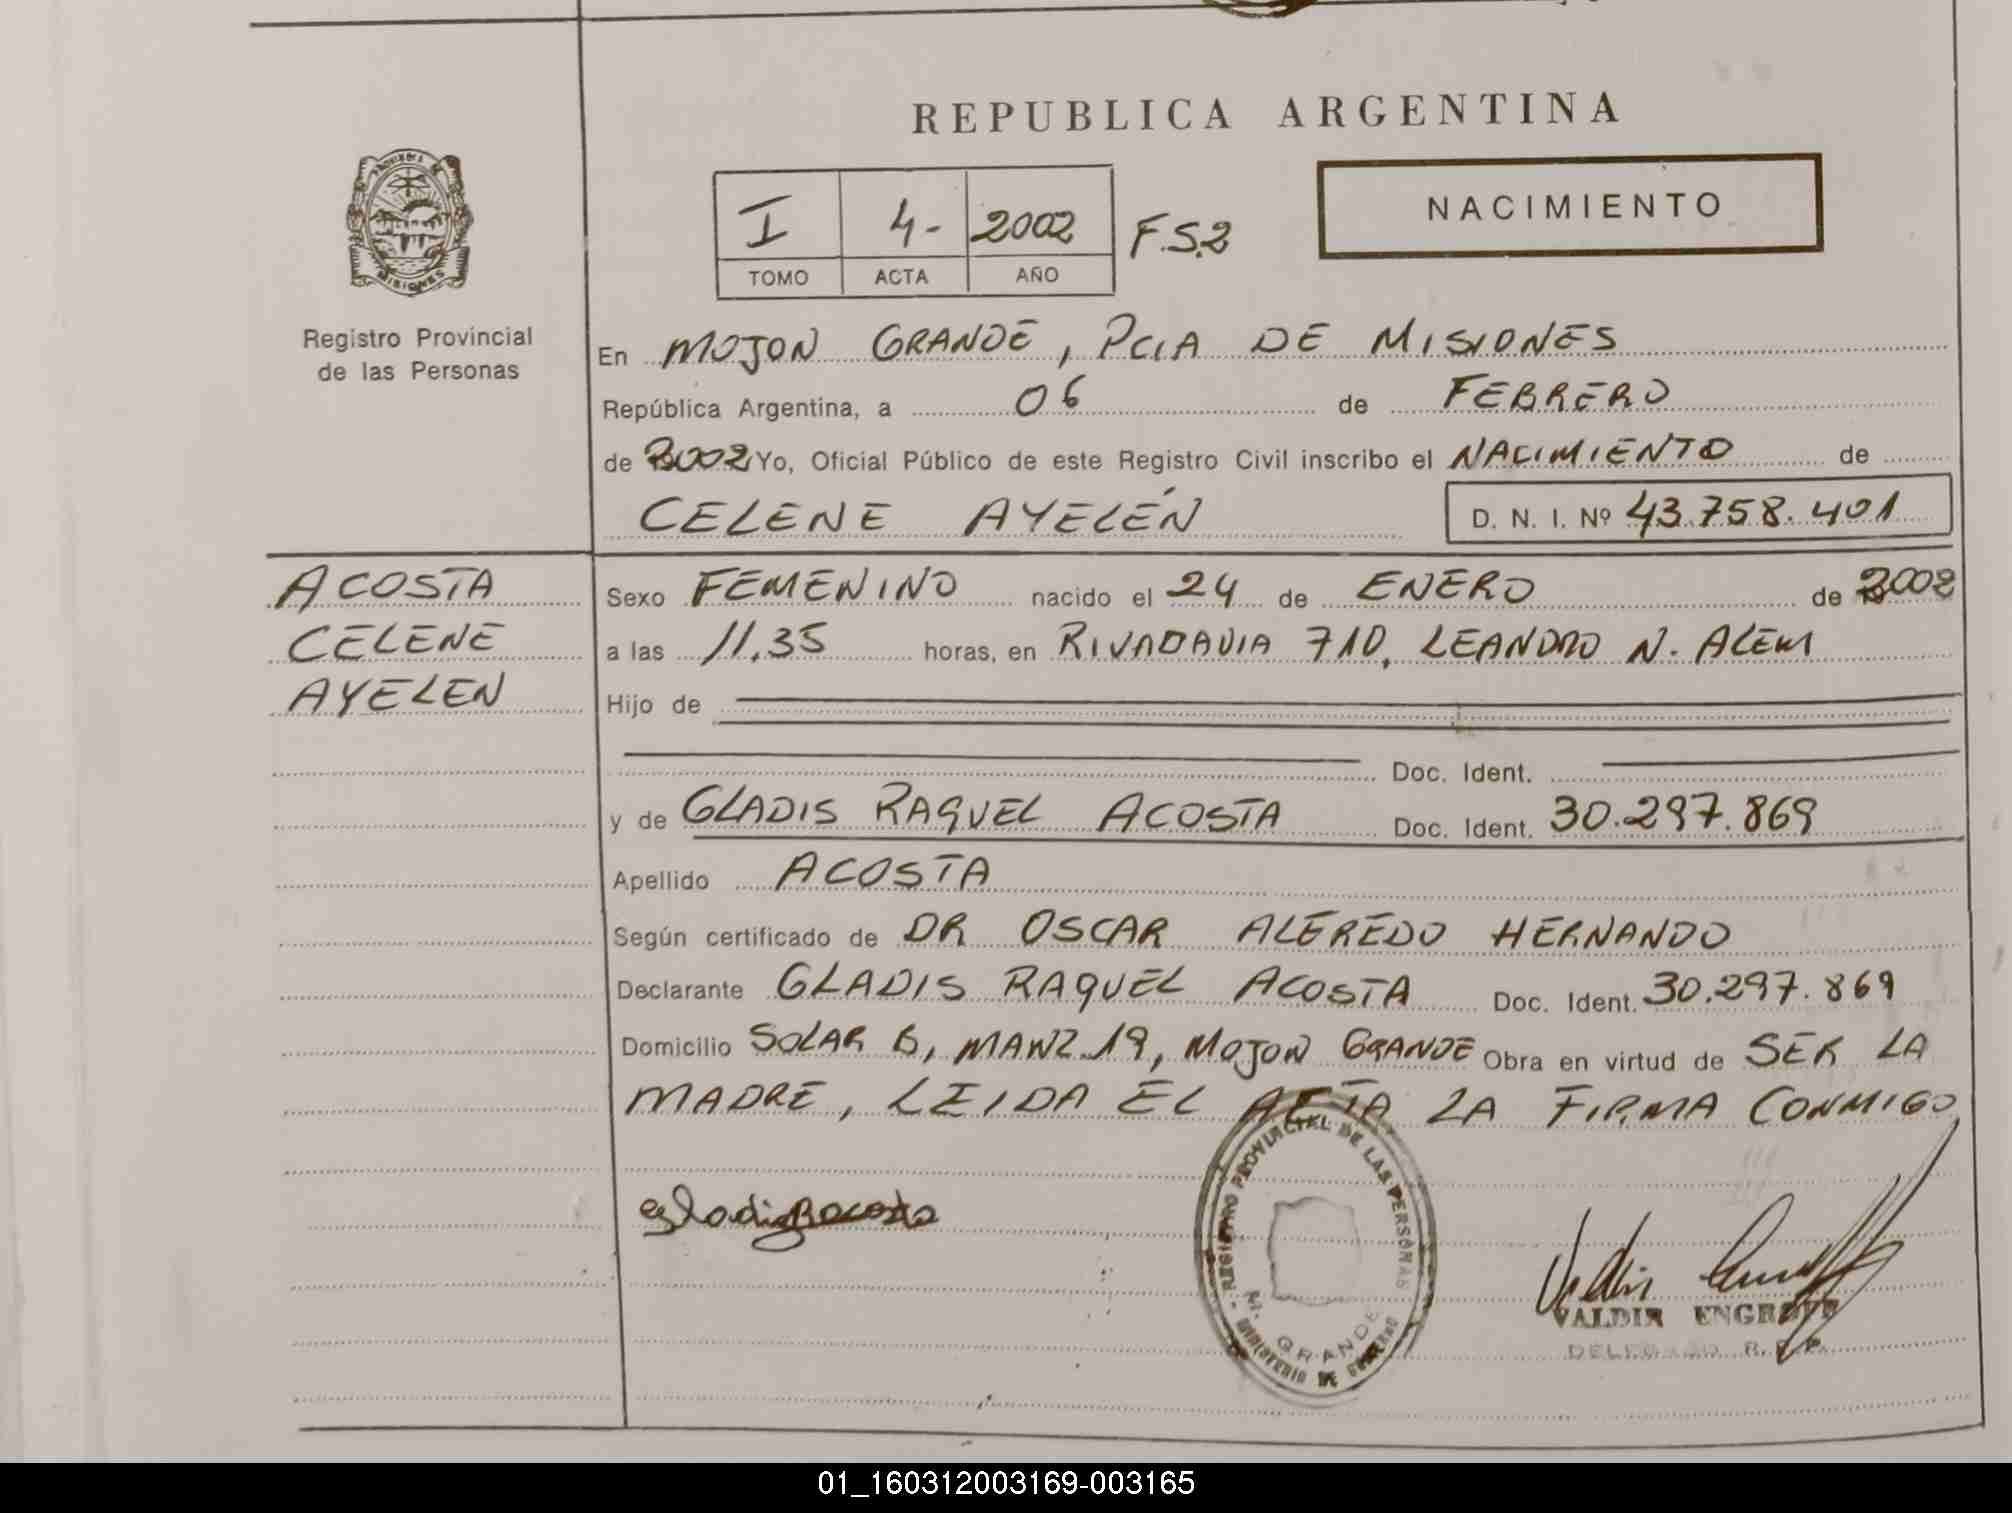 REPUBLICA ARGENTINA
I 4- 2002 F.S.2
TOMO ACTA AÑO
NACIMIENTO
PROVINCIA DE
MISIONES
Registro Provincial
de las Personas
En MOJON GRANDE, PCIA DE MISIONES
República Argentina, a 06 de FEBRERO
de 2002 Yo, Oficial Público de este Registro Civil inscribo el NACIMIENTO de
CELENE AYELÉN D. N. I. Nº 43.758.401
ACOSTA
CELENE
AYELEN
Sexo FEMENINO nacido el 24 de ENERO de 2002
a las 11,35 horas, en RIVADAVIA 710, LEANDRO N. ALEM
Hijo de
Doc. Ident.
y de GLADIS RAQUEL ACOSTA Doc. Ident. 30.297.869
Apellido ACOSTA
Según certificado de DR OSCAR ALFREDO HERNANDO
Declarante GLADIS RAQUEL ACOSTA Doc. Ident. 30.297.869
Domicilio SOLAR 6, MANZ.19, MOJON GRANDE Obra en virtud de SER LA
MADRE, LEIDA EL ACTA LA FIRMA CONMIGO
Gladis R Acosta
REGISTRO PROVINCIAL DE LAS PERSONAS
GRANDE
MINISTERIO DE GOBIERNO
Valdir
VALDIR
R.P.P.
01_160312003169-003165